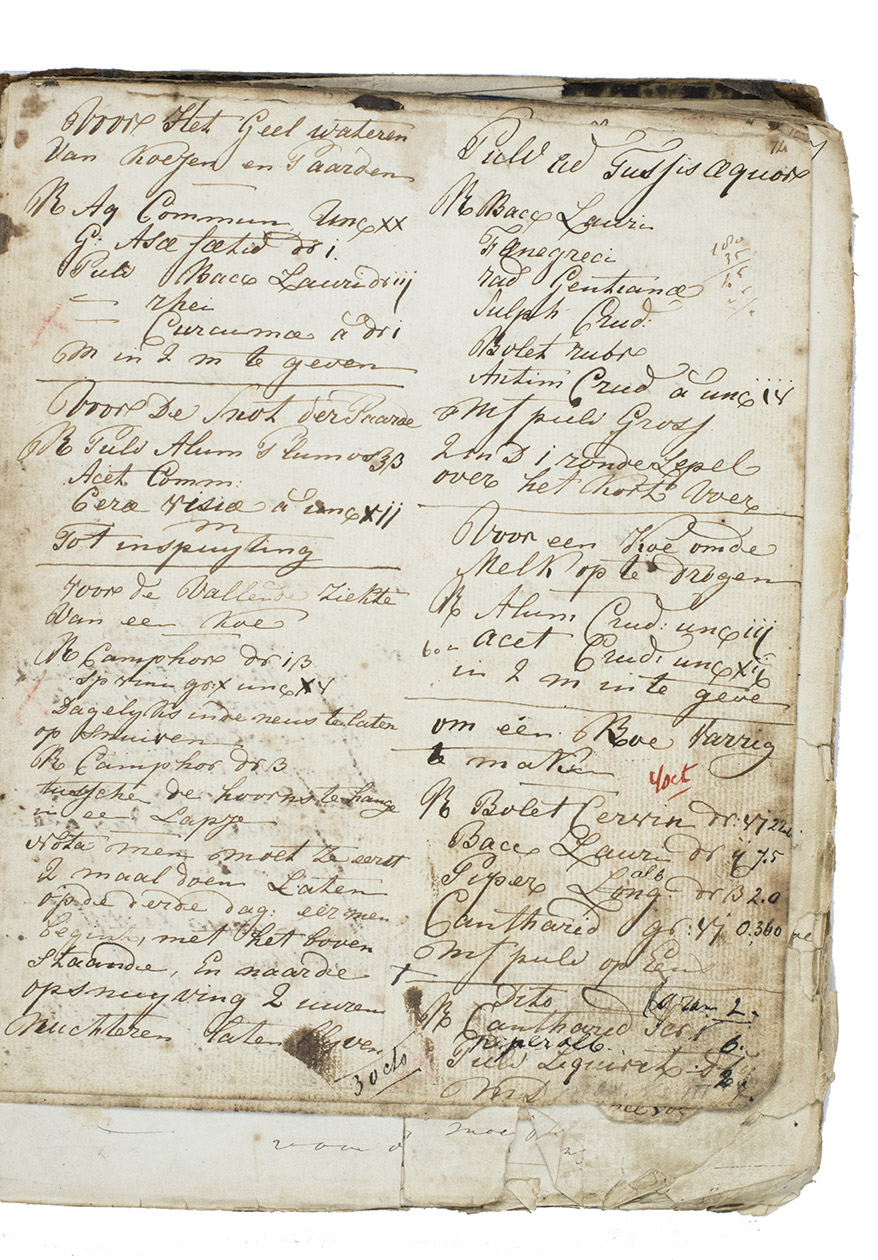 Voor Het Geel wateren
Van Koeyen en Paarden
R Aq Commun Unc xx
G: Asæ fœtid dr i.
Pulv Bacc Lauri dr iij
— rhei
— Curcumæ à dr i
M in 2 m te geven
Voor De Snot der Paarde
R Pulv Alum Plumos ʒ β
Acet Comm:
Cere visiæ à unc xij
m
Tot inspuyting
voor de Vallende ziekte
Van een Koe
R Camphor dr i β
sp vini unc
Dagelyks in de neus te laten
op snuiven
R Camphor dr β
tussche de hoorns te hange
in ee Lapje
Nota men moet ze eerst
2 maal doen Laten
op de derde dag: eer men
begint, met het boven
staande, En naar die
opsnuyving 2 uuren
Nuchteren laten blyven
3 octo
Pulv ad Tussis æquor
R Bacc Lauri
Fænegreci
rad Gentianæ
Sulph Crud:
Bolet rubr
Antim Crud à unc iiij
Mf pulv Gross
2 in D 1 ronde Lepel
over het Kort Voer
Voor een Koe om de
Melk op te drogen
R Alum Crud: unc iij
Acet Crud: unc xij
in 2 m in te geve
om een Koe Varrig
te maken
4 oct
R Bolet Cervin dr: vj 22.
Bacc Lauri dr ij 7.5
alb
Piper Long dr β 2.0
Cantharid gr: vj 0.360
Mf pulv op Eens
Dito gram 2.
R Cantharid scr i
piper alb. 6.
Pulv
M D
voor d